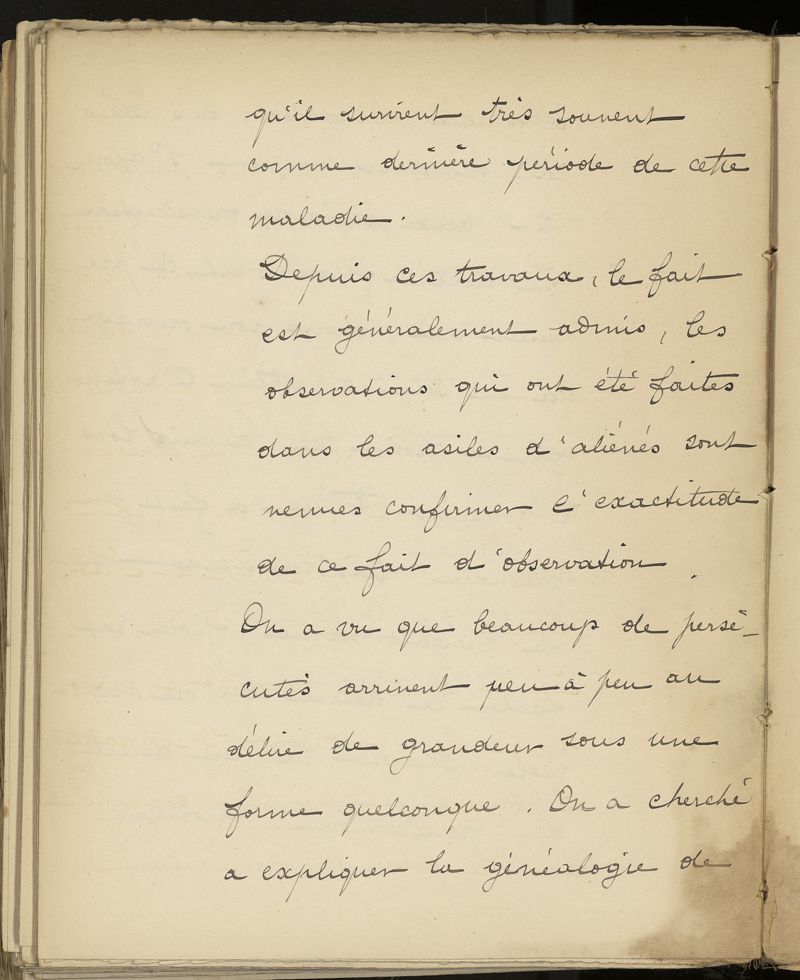 qu'il survient très souvent
comme dernière période de cette
maladie.
Depuis ces travaux, le fait
est généralement admis, les
observations qui ont été faites
dans les asiles d'aliénés sont
venues confirmer l'exactitude
de ce fait d'observation.
On a vu que beaucoup de persé-
cutés arrivent peu à peu au
délire de grandeur sous une
forme quelconque. On a cherché
a expliquer la généalogie de